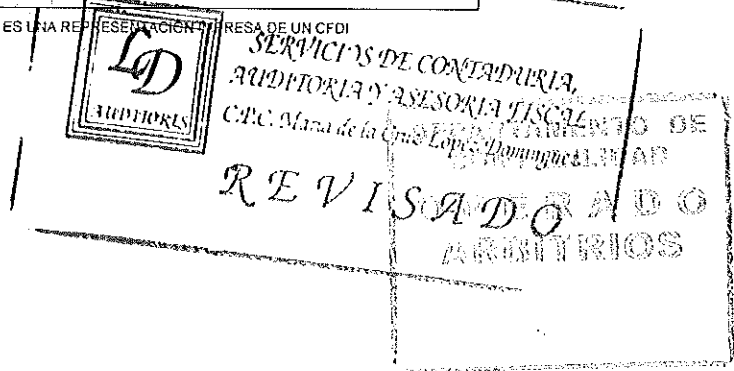 ES UNA REPRESENTACIÓN IMPRESA DE UN CFDI
LD
AUDITORES
SERVICIOS DE CONTADURIA,
AUDITORIA Y ASESORIA FISCAL
C.P.C. Maria de la Cruz López Domínguez
REVISADO
DEPARTAMENTO DE
CONTABILIDAD
OPERADO
ARBITRIOS